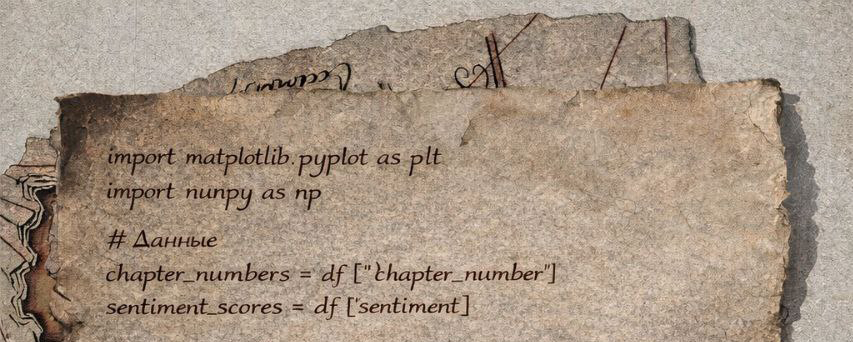 import matplotlib.pyplot as plt
import nunpy as np
# Данные
chapter_numbers = df ["`chapter_number"]
sentiment_scores = df ['sentiment]